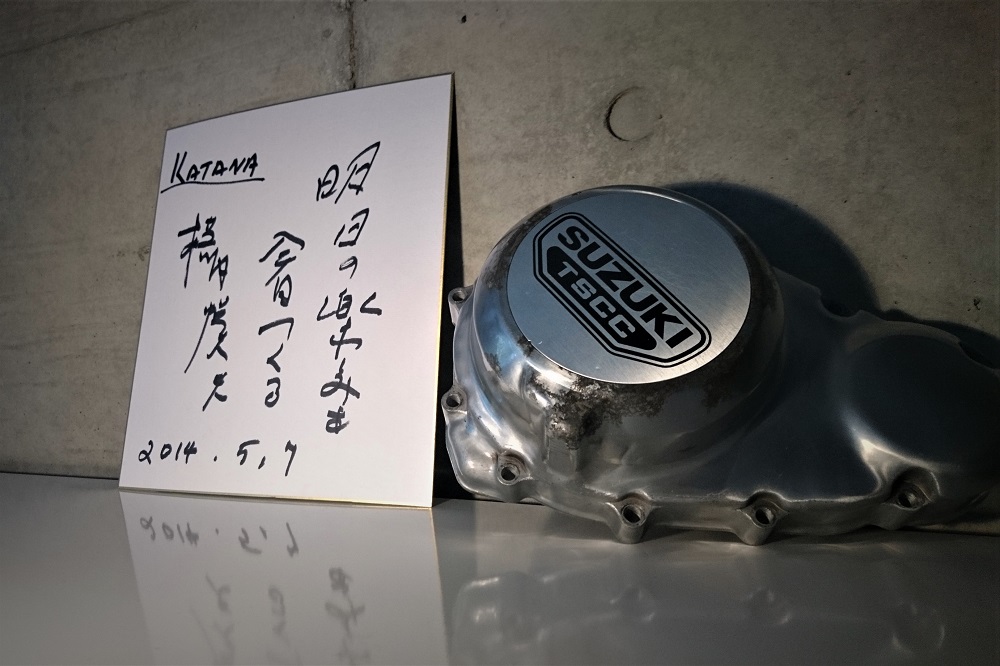 KATANA
明日の楽しみを
今日つくる
横内悦夫
2014.5.7
SUZUKI
TSCC